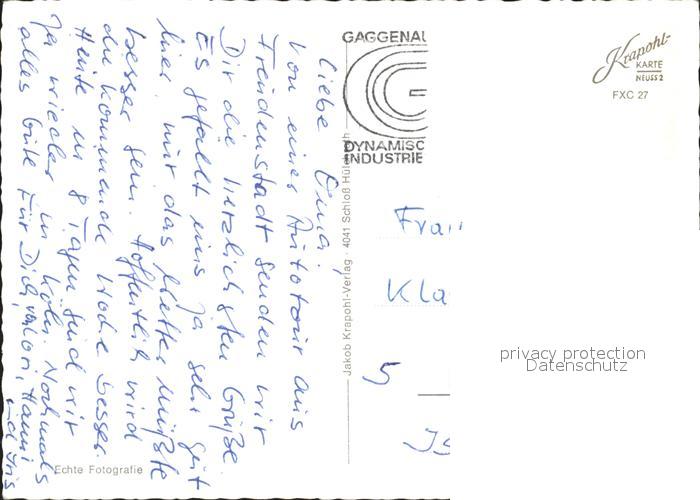 Liebe Oma,
von einer Autotour aus
Freudenstadt senden wir
Dir die herzlichsten Grüße.
Es gefällt uns ja sehr gut
hier. nur das Wetter müßte
besser sein. Hoffentlich wird
die kommende Woche besser.
Heute in 8 Tagen sind wir
ja wieder in Köln. Nochmals
alles Gute für Dich, von Lori, Hanni
Iris
Echte Fotografie
Jakob Krapohl-Verlag · 4041 Schloß Hül
GAGGENAU
DYNAMISC
INDUSTRIE
Krapohl-
KARTE
NEUSS 2
FXC 27
Frau
Kla
5
privacy protection
Datenschutz